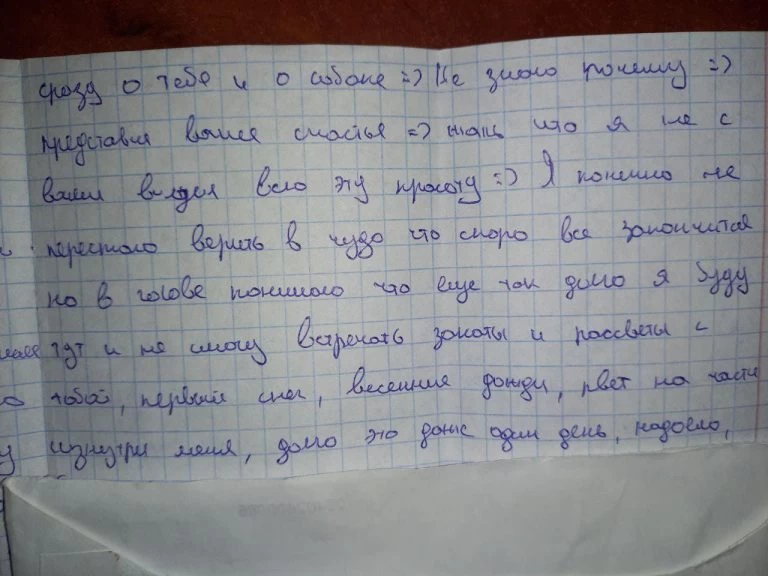 сразу о тебе и о собаке =) Не знаю почему =)
представил ваши счастья =) жаль что я не с
вами видел всю эту красоту =) Я конечно не
перестаю верить в чудо что скоро все закончится
но в голове понимаю что еще так долго я буду
тут и не смогу встречать закаты и рассветы с
тобой, первый снег, весенние дожди, рвет на части
изнутри меня, долго это даже один день, надоело,